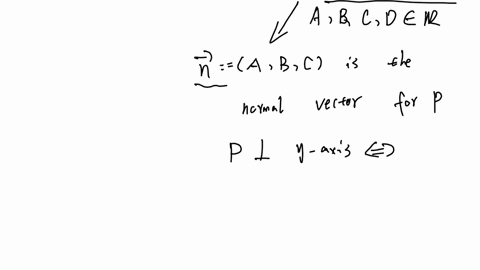 A, B, C, D ∈ ℝ
n⃗ := (A, B, C) is the
normal vector for P
P ⊥ y-axis ⇔